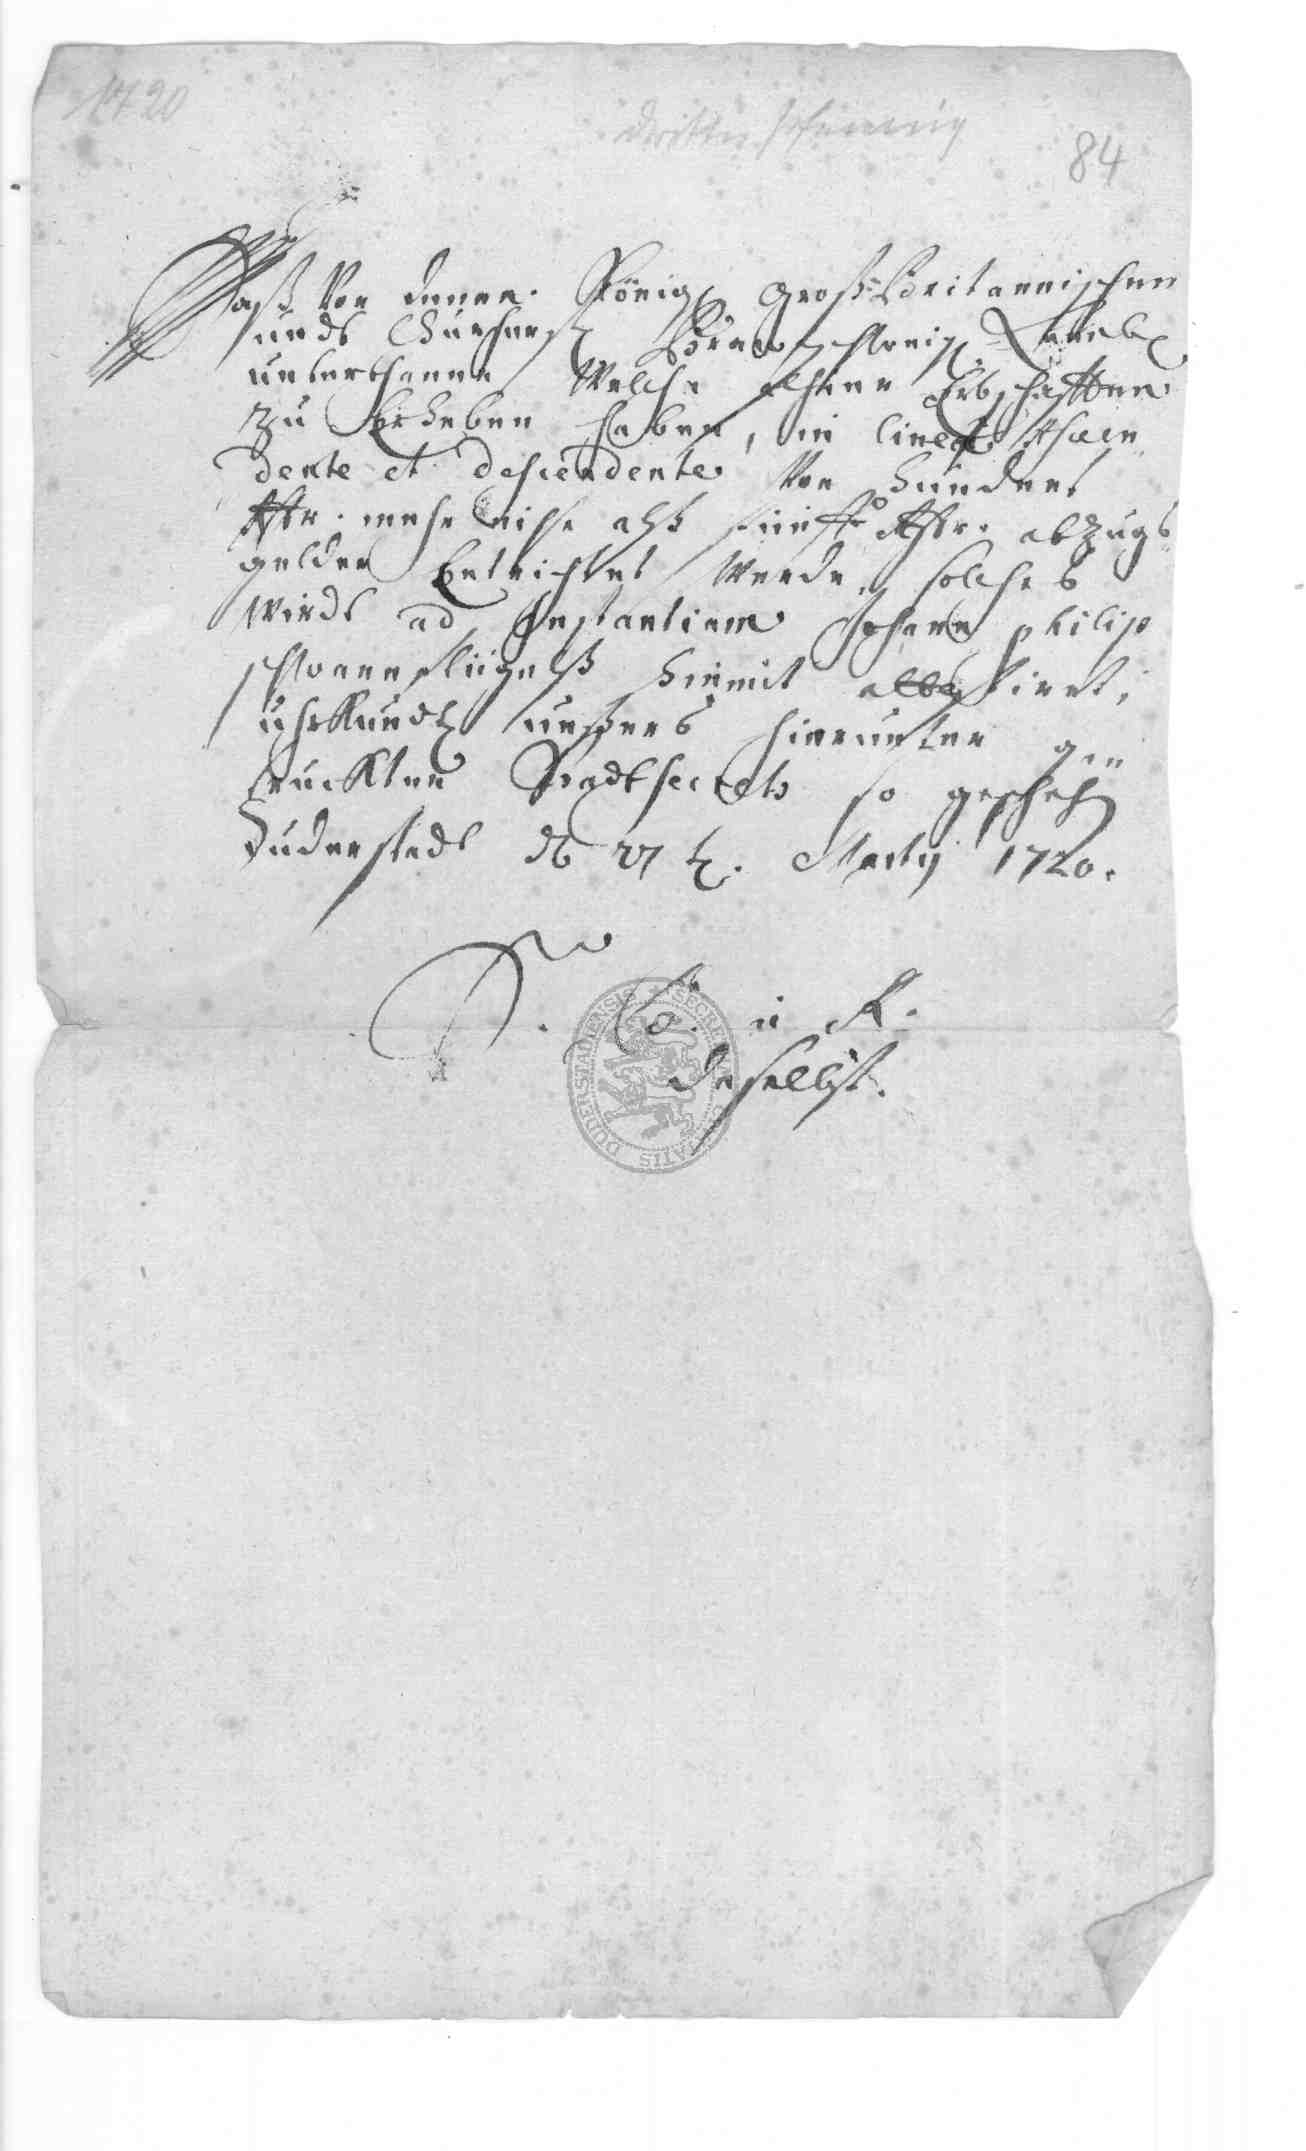 1720
dritter Pfennig
84
Daß Von denen Königl. Groß-Britannischen
undt Churfürstl. Braunschweig. Lüneb.
unterthanen Welche alhier Erbschafften
zu Erheben haben, in linea Ascen-
dente et descendente Von hundert
Rthr. mehr nicht alß fünff Rthr. abzugs
gelder Entrichtet Werde, solches
wirdt ad Instantiam Johann Philip
schwanenflügelß hiemit attestiret,
uhrkundtl. unßers hierunter ge-
truckten Stadtsecrets so geschehen
Duderstadt d. 27 t. Martij 1720.
B. u R.
daselbst.
SECRET DUDERSTADIENSIS